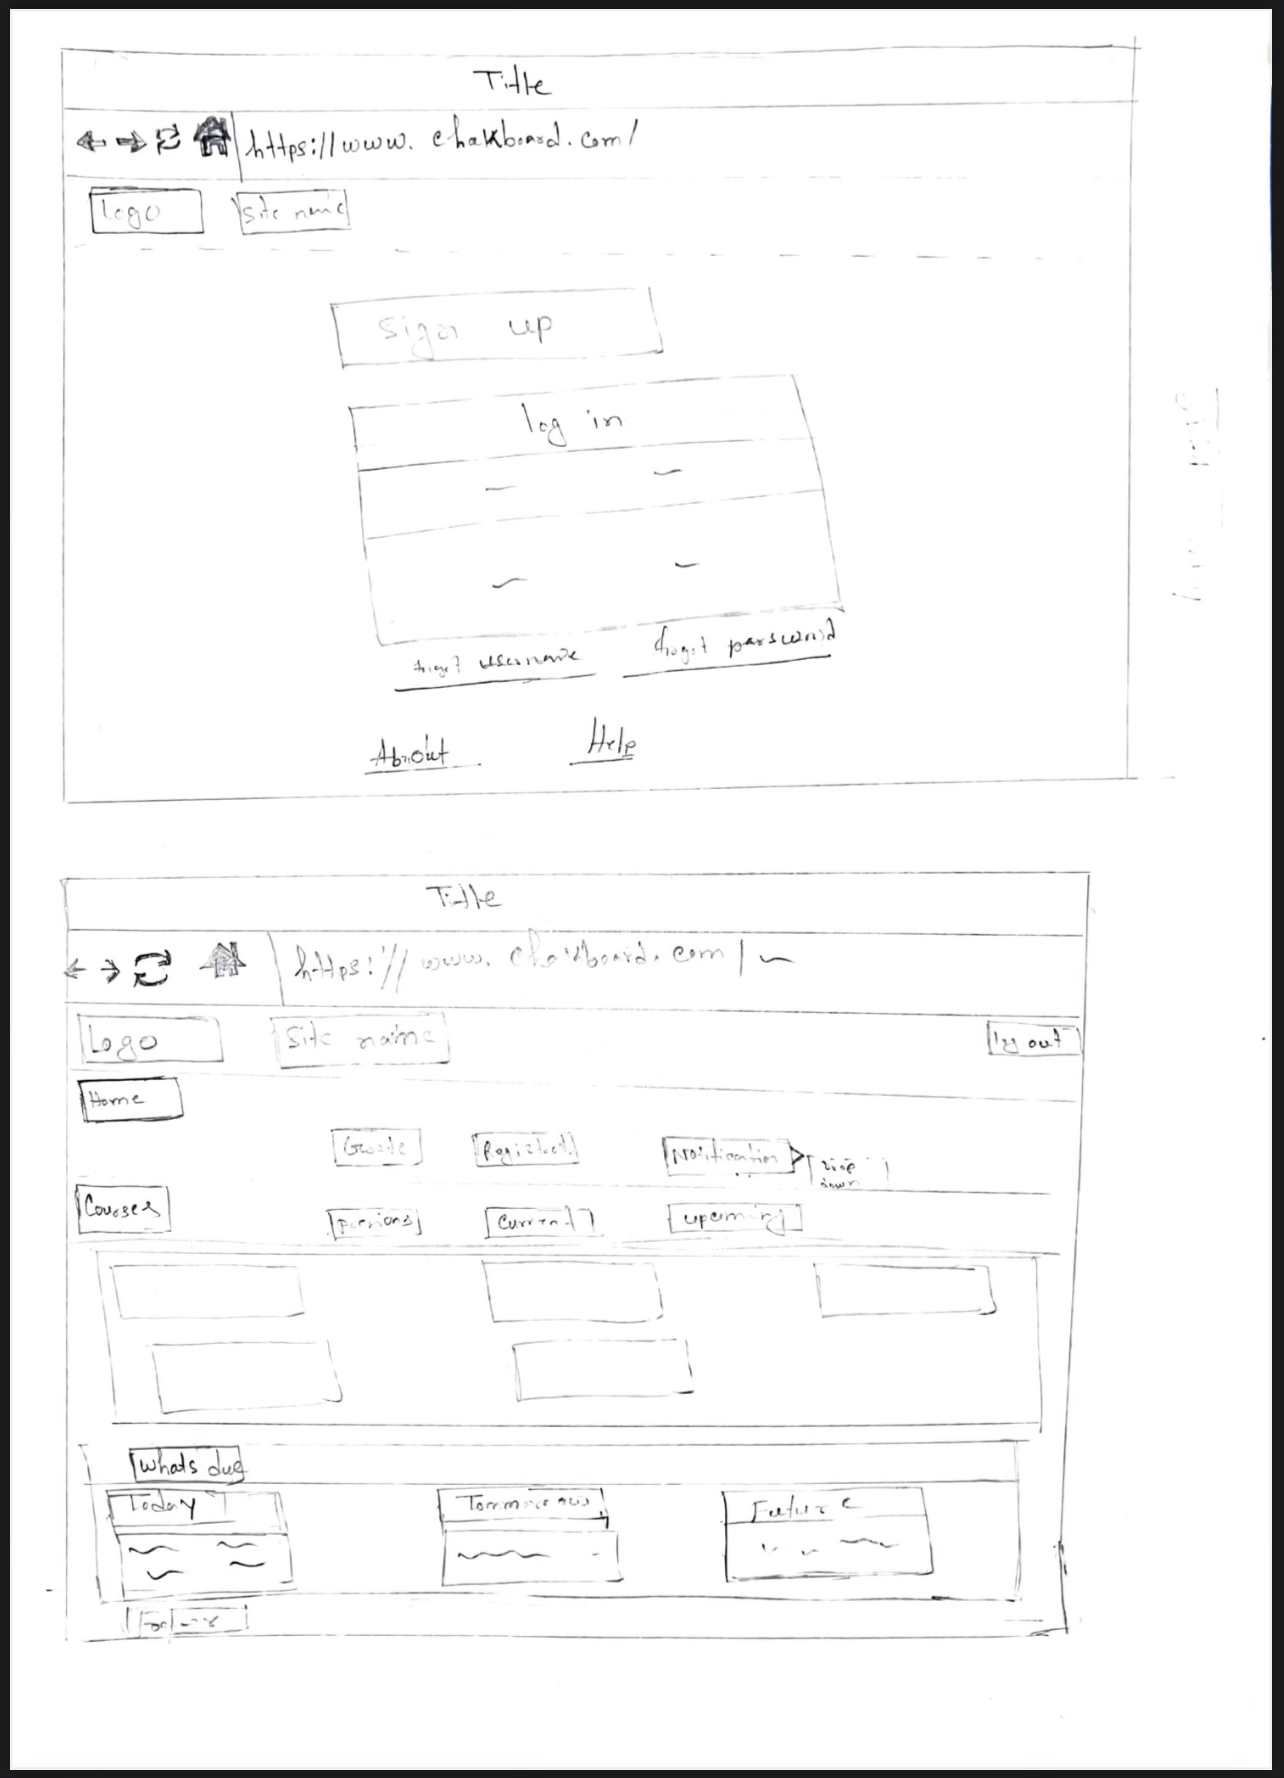 Title
https://www.chakboard.com/
Logo
Site name
Sign up
log in
forgot username
forgot password
About
Help
Title
https://www.chakboard.com/
Logo
Site name
log out
Home
Grade
Notification
drop down
Courses
current
upcoming
whats due
Today
Tommorow
Future